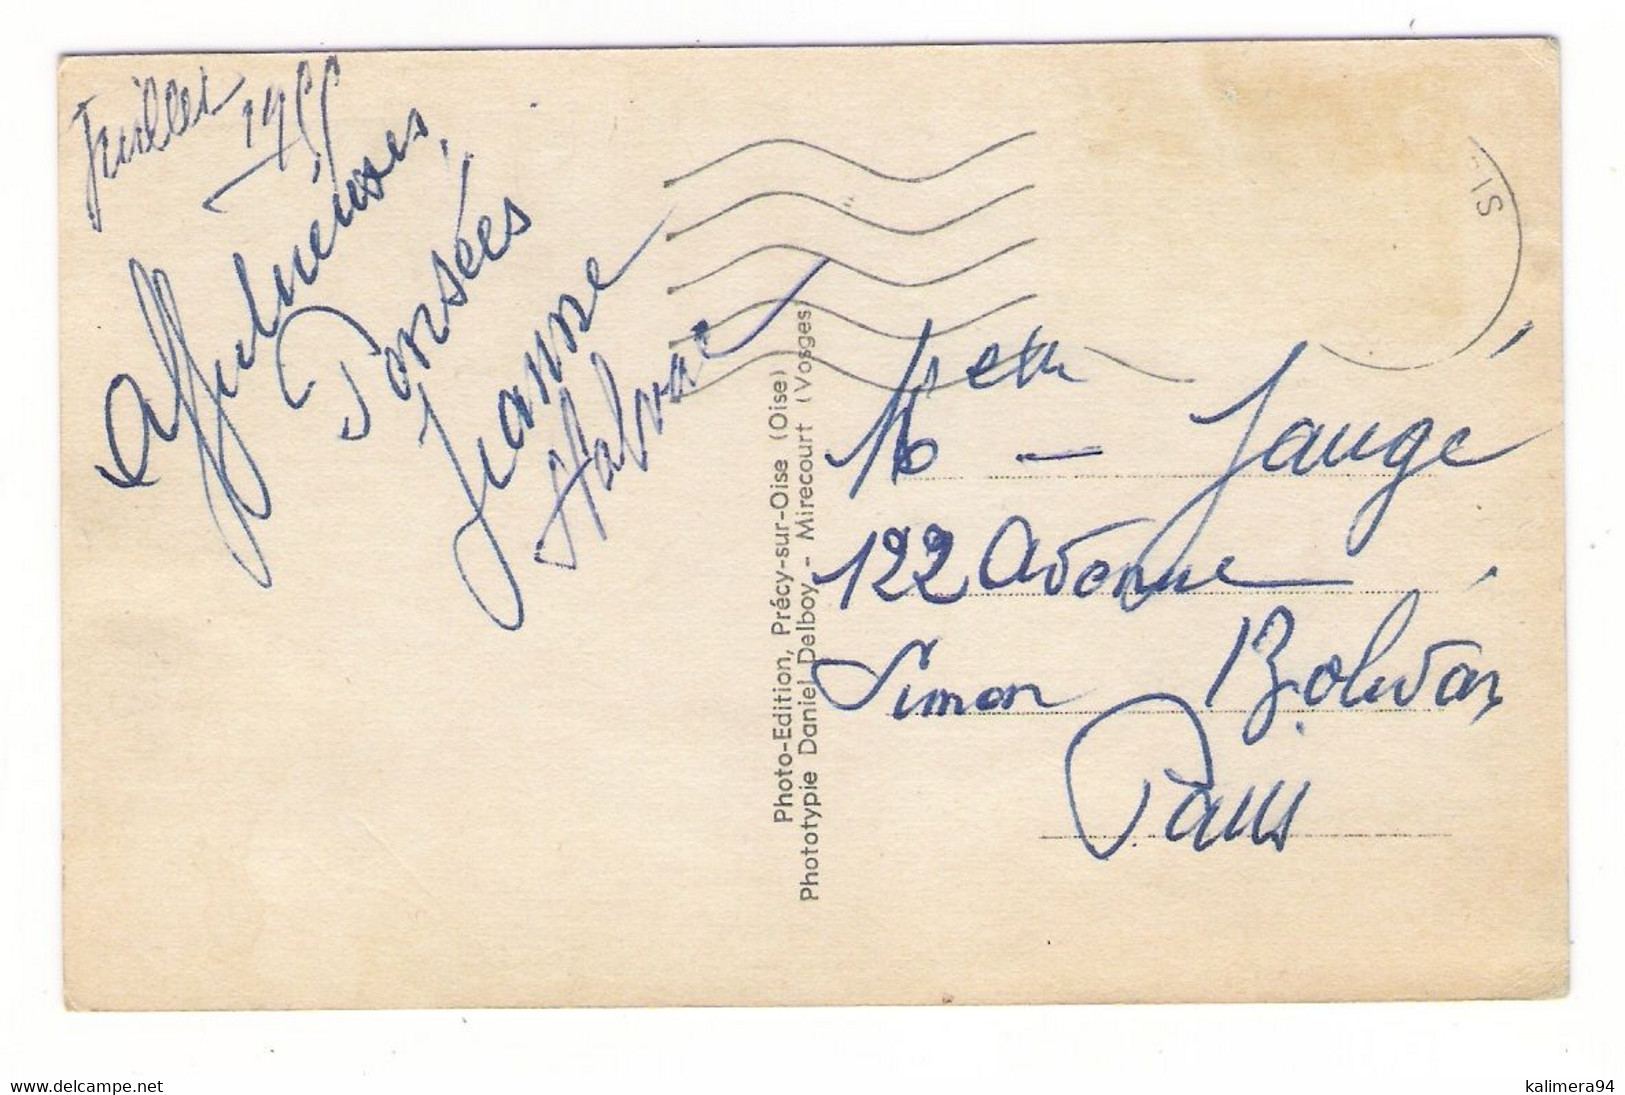 Juillet 1955
Affectueuses
Pensées
Jeanne
Halvac
M
Jaugé
122 Avenue
Simon Bolivar
Paris
Photo-Edition, Précy-sur-Oise (Oise)
Phototypie Daniel Delboy - Mirecourt (Vosges)
www.delcampe.net
kalimera94